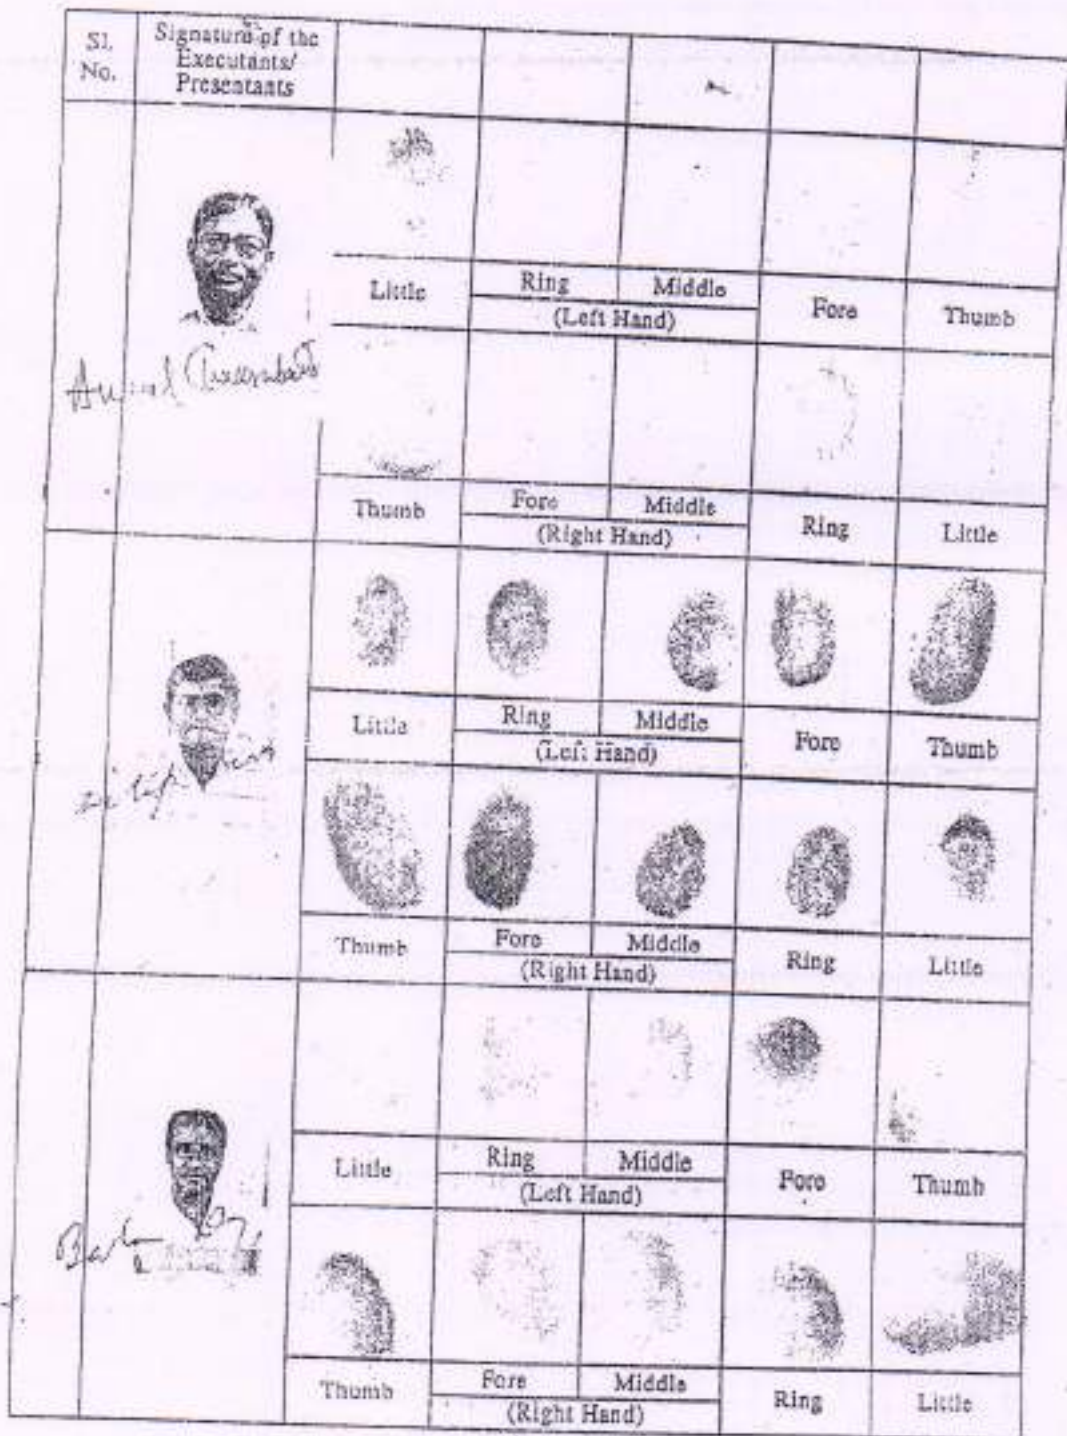 Sl.
No.
Signature of the
Executants/
Presentants
Little Ring Middle Fore Thumb
(Left Hand)
Thumb Fore Middle Ring Little
(Right Hand)
Little Ring Middle Fore Thumb
(Left Hand)
Thumb Fore Middle Ring Little
(Right Hand)
Little Ring Middle Fore Thumb
(Left Hand)
Thumb Fore Middle Ring Little
(Right Hand)